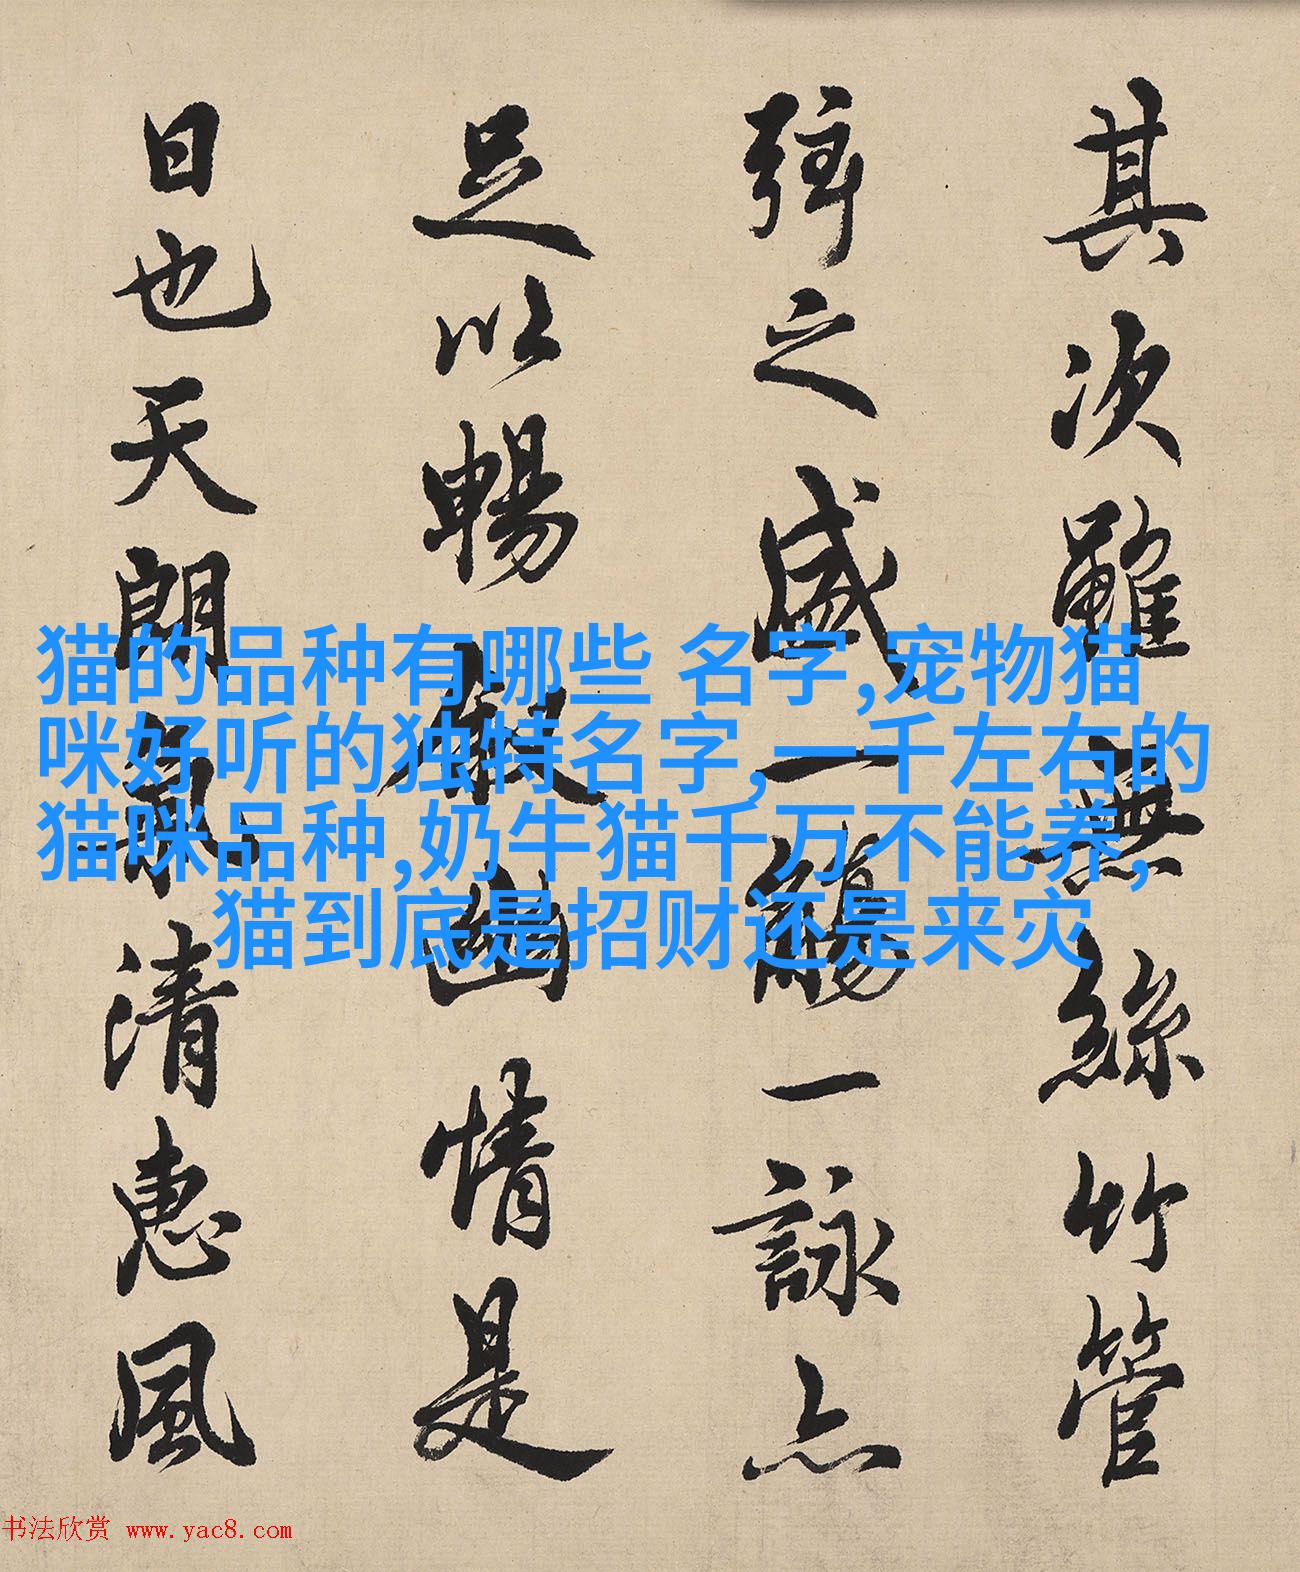 其次雖無絲竹管
弦之盛一觴一詠亦
足以暢敘幽情是
日也天朗氣清惠風
猫的品种有哪些 名字,宠物猫
咪好听的独特名字,一千左右的
猫咪品种,奶牛猫千万不能养,
猫到底是招财还是来灾
书法欣赏 www.yac8.com